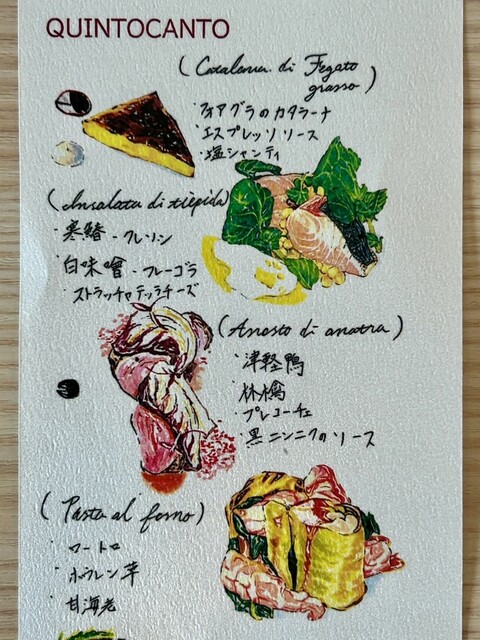 QUINTOCANTO
(Catalana di Fegato
grasso)
・フォアグラのカタラーナ
・エスプレッソソース
・塩シャンティ
(Insalata di tièpida)
・寒鰆・クレソン
・白味噌・フレーゴラ
・ストラッチャテッラチーズ
(Arrosto di anatra)
・津軽鴨
・林檎
・プレコーチェ
・黒ニンニクのソース
(Pasta al forno)
・ロートロ
・ホウレン草
・甘海老